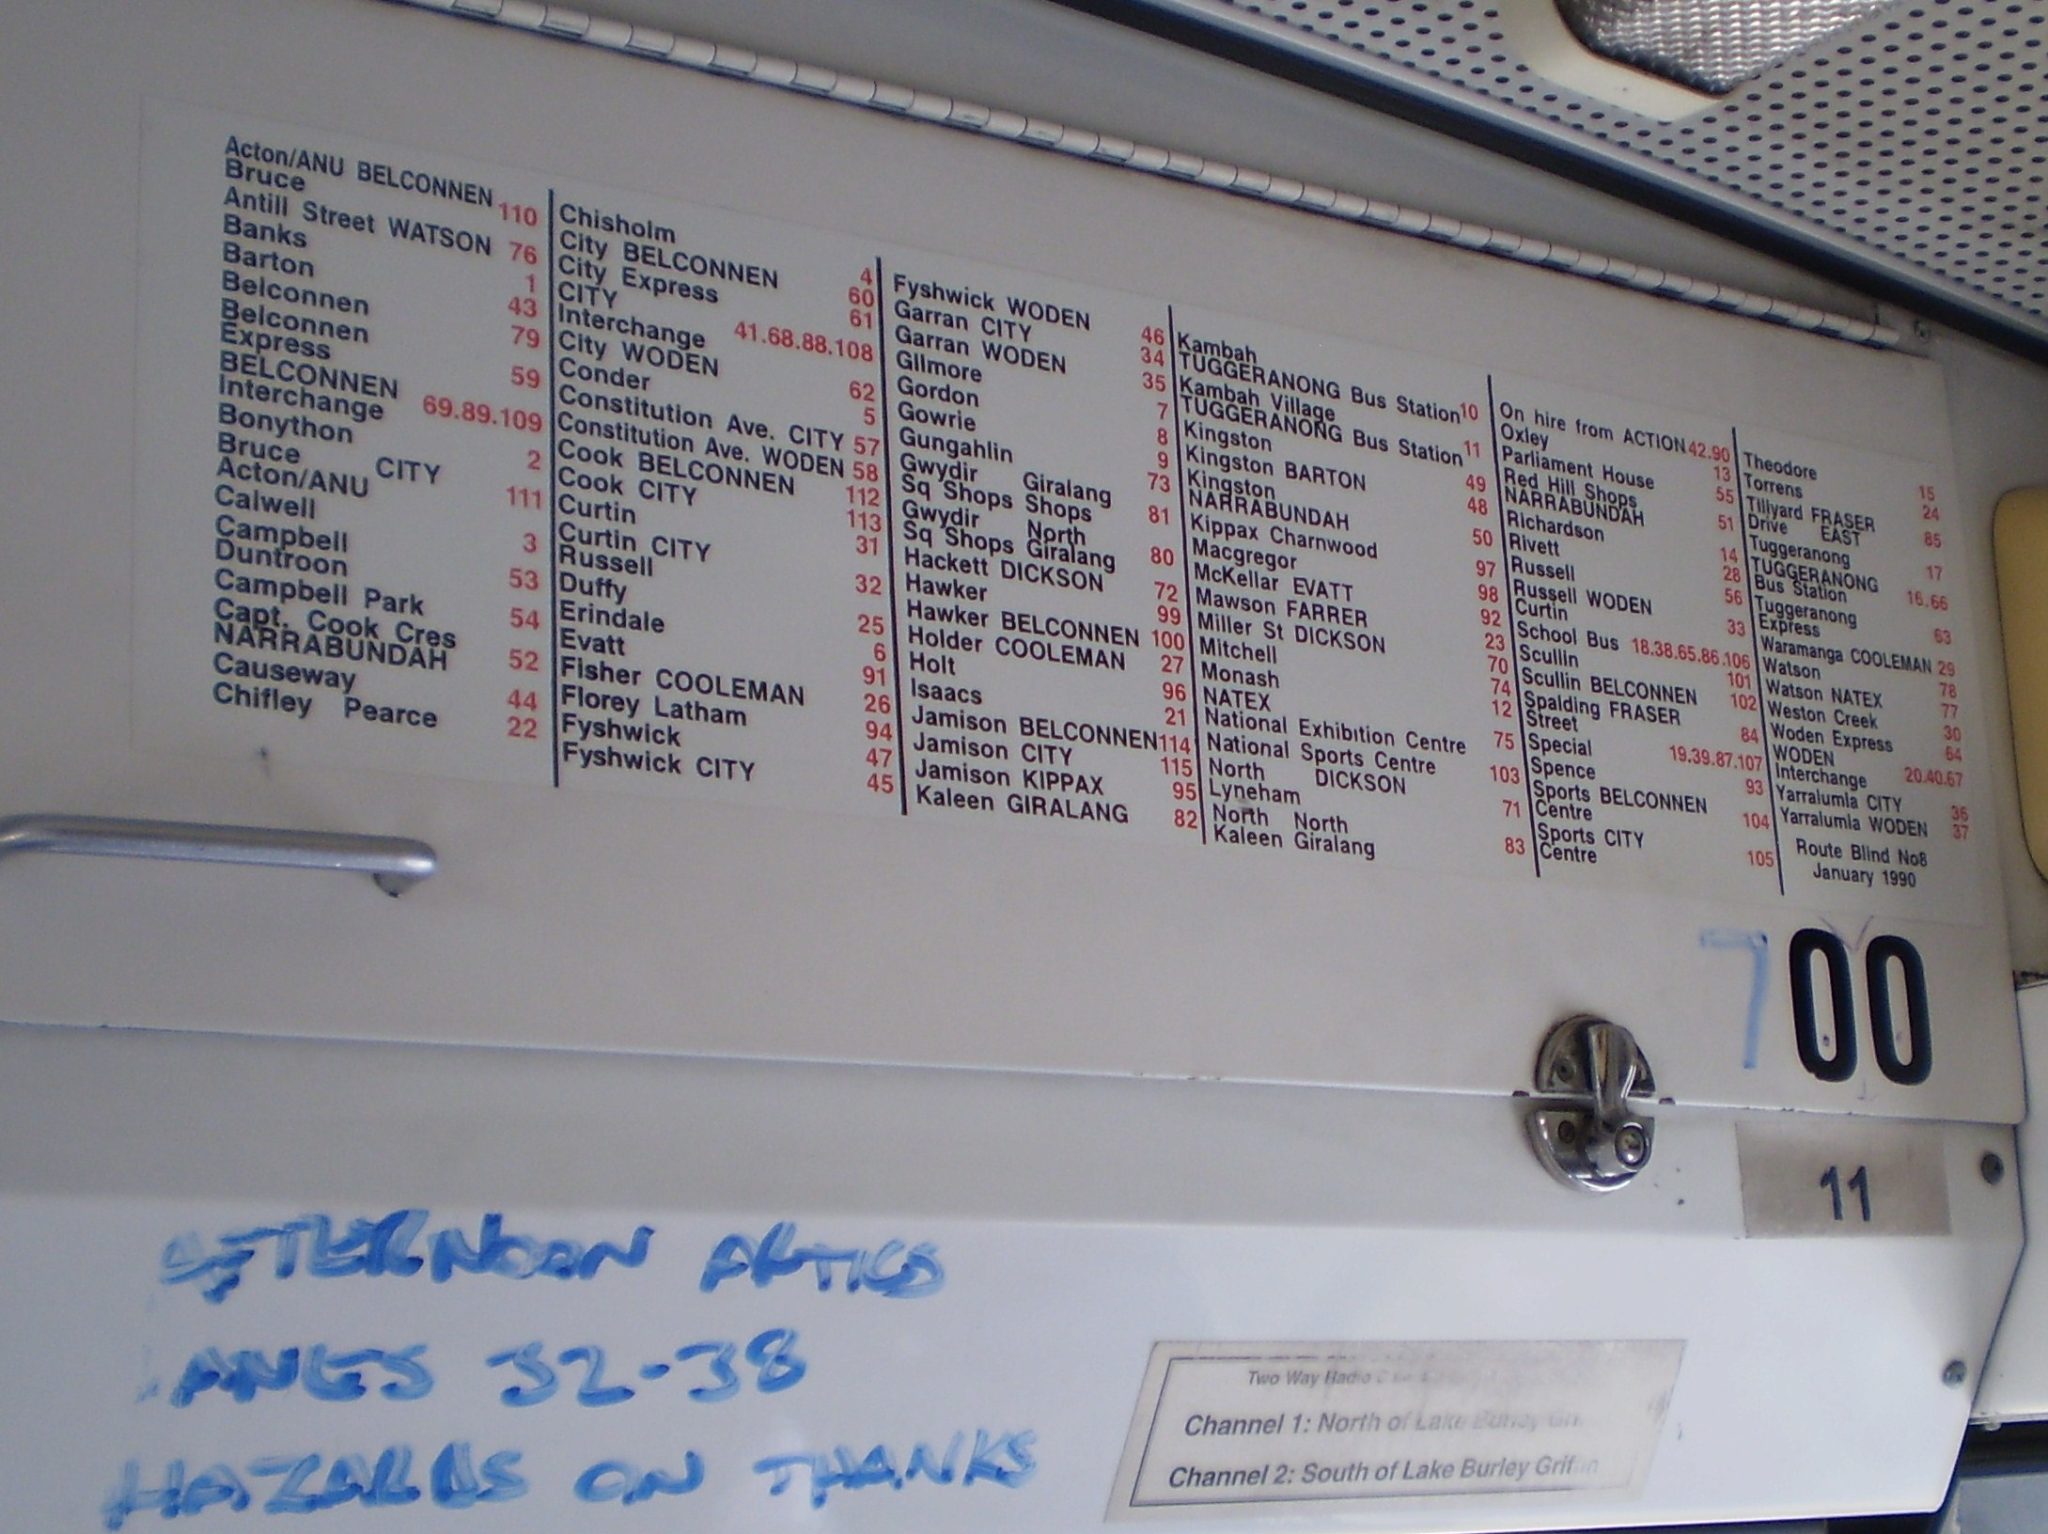 Acton/ANU BELCONNEN
Bruce 110
Antill Street WATSON 76
Banks 1
Barton 43
Belconnen 79
Belconnen
Express 59
BELCONNEN
Interchange 69.89.109
Bonython 2
Bruce CITY
Acton/ANU 111
Calwell 3
Campbell
Duntroon 53
Campbell Park 54
Capt. Cook Cres
NARRABUNDAH 52
Causeway 44
Chifley Pearce 22
Chisholm 4
City BELCONNEN 60
City Express 61
CITY
Interchange 41.68.88.108
City WODEN 62
Conder 5
Constitution Ave. CITY 57
Constitution Ave. WODEN 58
Cook BELCONNEN 112
Cook CITY 113
Curtin 31
Curtin CITY
Russell 32
Duffy 25
Erindale 6
Evatt 91
Fisher COOLEMAN 26
Florey Latham 94
Fyshwick 47
Fyshwick CITY 45
Fyshwick WODEN 46
Garran CITY 34
Garran WODEN 35
Gilmore 7
Gordon 8
Gowrie 9
Gungahlin 73
Gwydir Giralang
Sq Shops Shops 81
Gwydir North
Sq Shops Giralang 80
Hackett DICKSON 72
Hawker 99
Hawker BELCONNEN 100
Holder COOLEMAN 27
Holt 96
Isaacs 21
Jamison BELCONNEN 114
Jamison CITY 115
Jamison KIPPAX 95
Kaleen GIRALANG 82
Kambah
TUGGERANONG Bus Station 10
Kambah Village
TUGGERANONG Bus Station 11
Kingston 49
Kingston BARTON 48
Kingston
NARRABUNDAH 50
Kippax Charnwood 97
Macgregor 98
McKellar EVATT 92
Mawson FARRER 23
Miller St DICKSON 70
Mitchell 74
Monash 12
NATEX
National Exhibition Centre 75
National Sports Centre 103
North DICKSON
Lyneham 71
North North
Kaleen Giralang 83
On hire from ACTION 42.90
Oxley 13
Parliament House 55
Red Hill Shops
NARRABUNDAH 51
Richardson 14
Rivett 28
Russell 56
Russell WODEN
Curtin 33
School Bus 18.38.65.86.106
Scullin 101
Scullin BELCONNEN 102
Spalding FRASER
Street 84
Special 19.39.87.107
Spence 93
Sports BELCONNEN
Centre 104
Sports CITY
Centre 105
Theodore 15
Torrens 24
Tillyard FRASER
Drive EAST 85
Tuggeranong 17
TUGGERANONG
Bus Station 16.66
Tuggeranong
Express 63
Waramanga COOLEMAN 29
Watson 78
Watson NATEX 77
Weston Creek 30
Woden Express 64
WODEN
Interchange 20.40.67
Yarralumla CITY 36
Yarralumla WODEN 37
Route Blind No8
January 1990
700
11
AFTERNOON ARTICS
LANES 32-38
HAZARDS ON THANKS
Two Way Radio
Channel 1: North of Lake Burley
Channel 2: South of Lake Burley Griffin